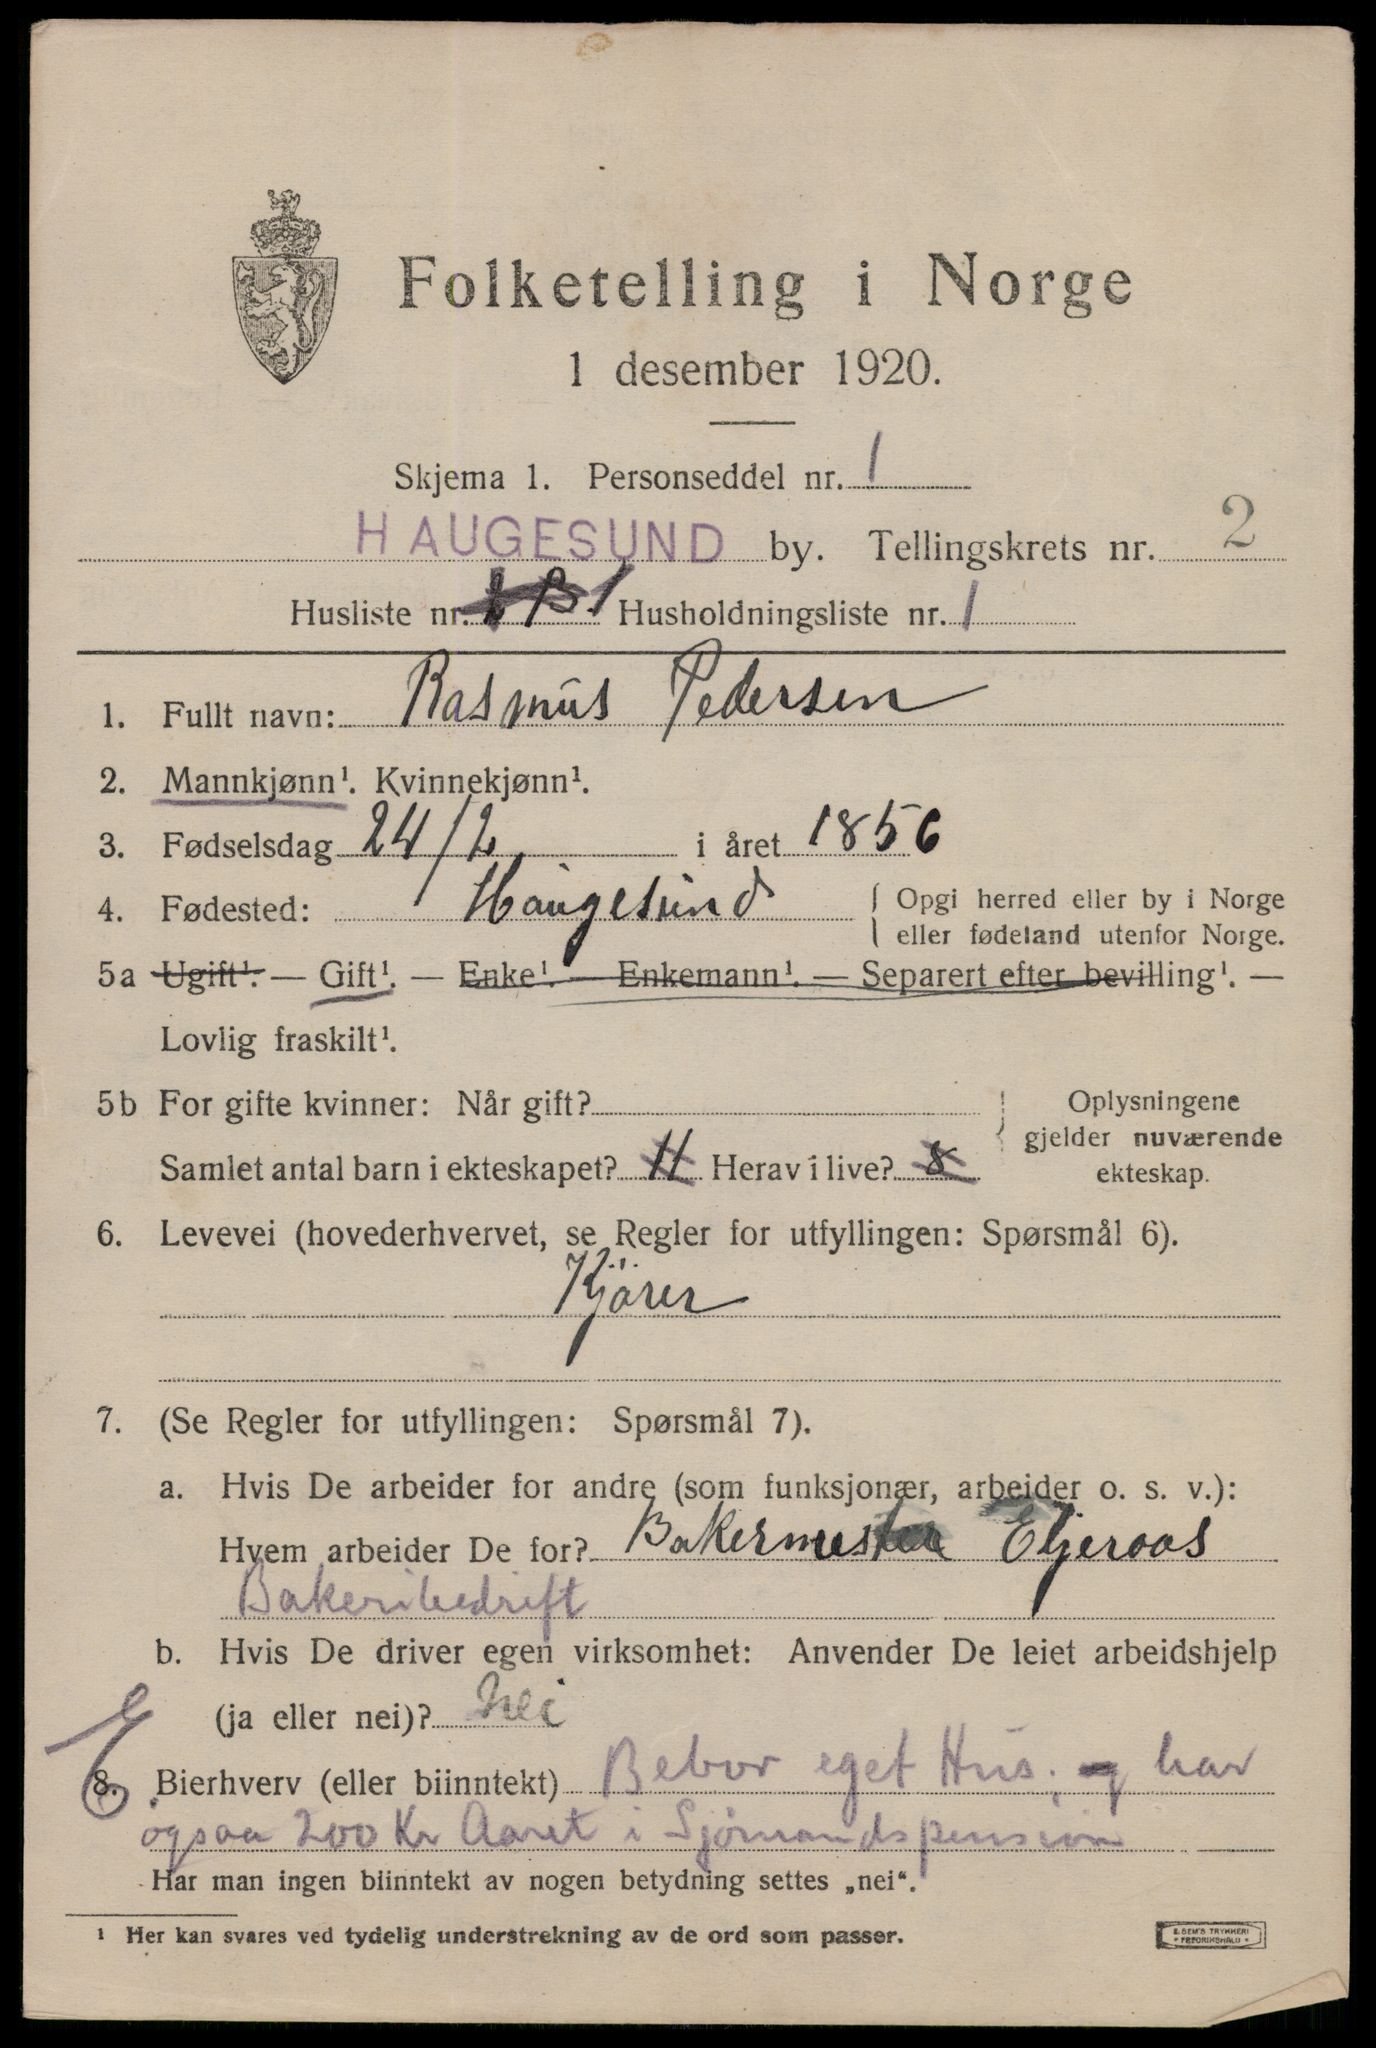 Folketelling i Norge
1 desember 1920.
Skjema 1. Personseddel nr. 1
HAUGESUND by. Tellingskrets nr. 2
Husliste nr. 1 Husholdningsliste nr. 1
1. Fullt navn: Rasmus Pedersen
2. Mannkjønn¹. Kvinnekjønn¹.
3. Fødselsdag 24/2 i året 1856
4. Fødested: Haugesund { Opgi herred eller by i Norge
eller fødeland utenfor Norge.
5a Ugift¹. — Gift¹. — Enke¹. — Enkemann¹. — Separert efter bevilling¹. —
Lovlig fraskilt¹.
5b For gifte kvinner: Når gift? Oplysningene
gjelder nuværende
Samlet antal barn i ekteskapet? 11 Herav i live? 8 ekteskap.
6. Levevei (hovederhvervet, se Regler for utfyllingen: Spørsmål 6).
Kjörer
7. (Se Regler for utfyllingen: Spørsmål 7).
a. Hvis De arbeider for andre (som funksjonær, arbeider o. s. v.):
Hvem arbeider De for? Bakermester Eljeraas
Bakeribedrift
b. Hvis De driver egen virksomhet: Anvender De leiet arbeidshjelp
(ja eller nei)? Nei
8. Bierhverv (eller biinntekt) Bebor eget Hus, og har
ogsaa 200 Kr Aaret i Sjömandspension
Har man ingen biinntekt av nogen betydning settes „nei“.
¹ Her kan svares ved tydelig understrekning av de ord som passer.
E. SEM'S TRYKKERI
FREDRIKSHALD